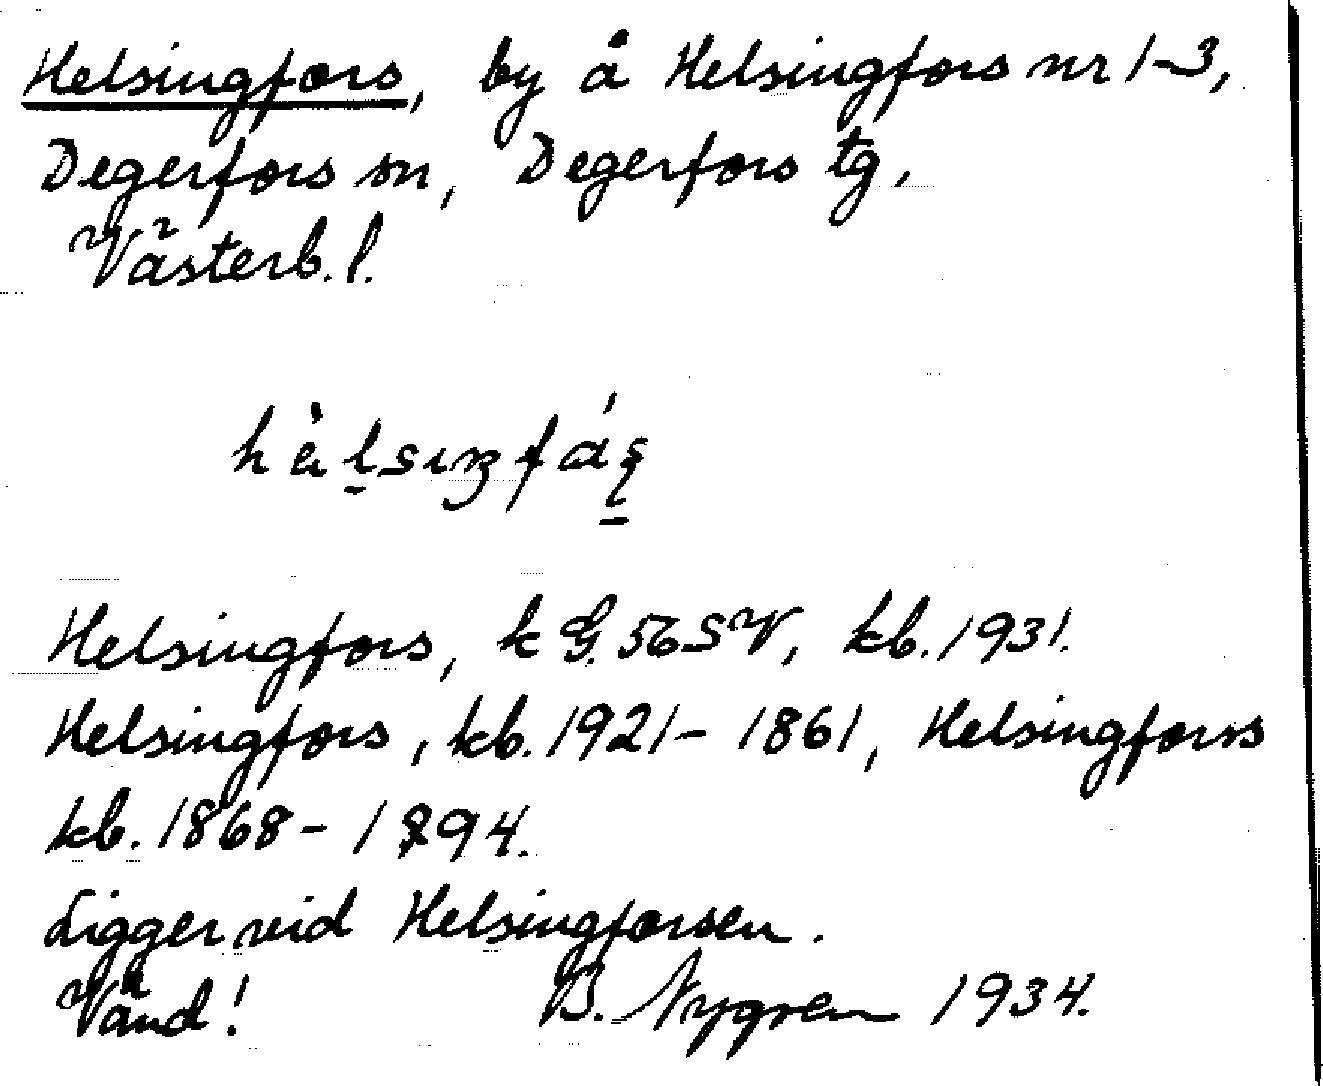 Helsingfors, by å Helsingfors nr 1-3,
Degerfors sn, Degerfors tg,
Västerb. l.
Helsingfors, k G. 56 SV, kb. 1931.
Helsingfors, kb. 1921 - 1861, Helsingforss
kb. 1868 - 1894.
Ligger vid Helsingforsen.
Vänd! B. Nygren 1934.